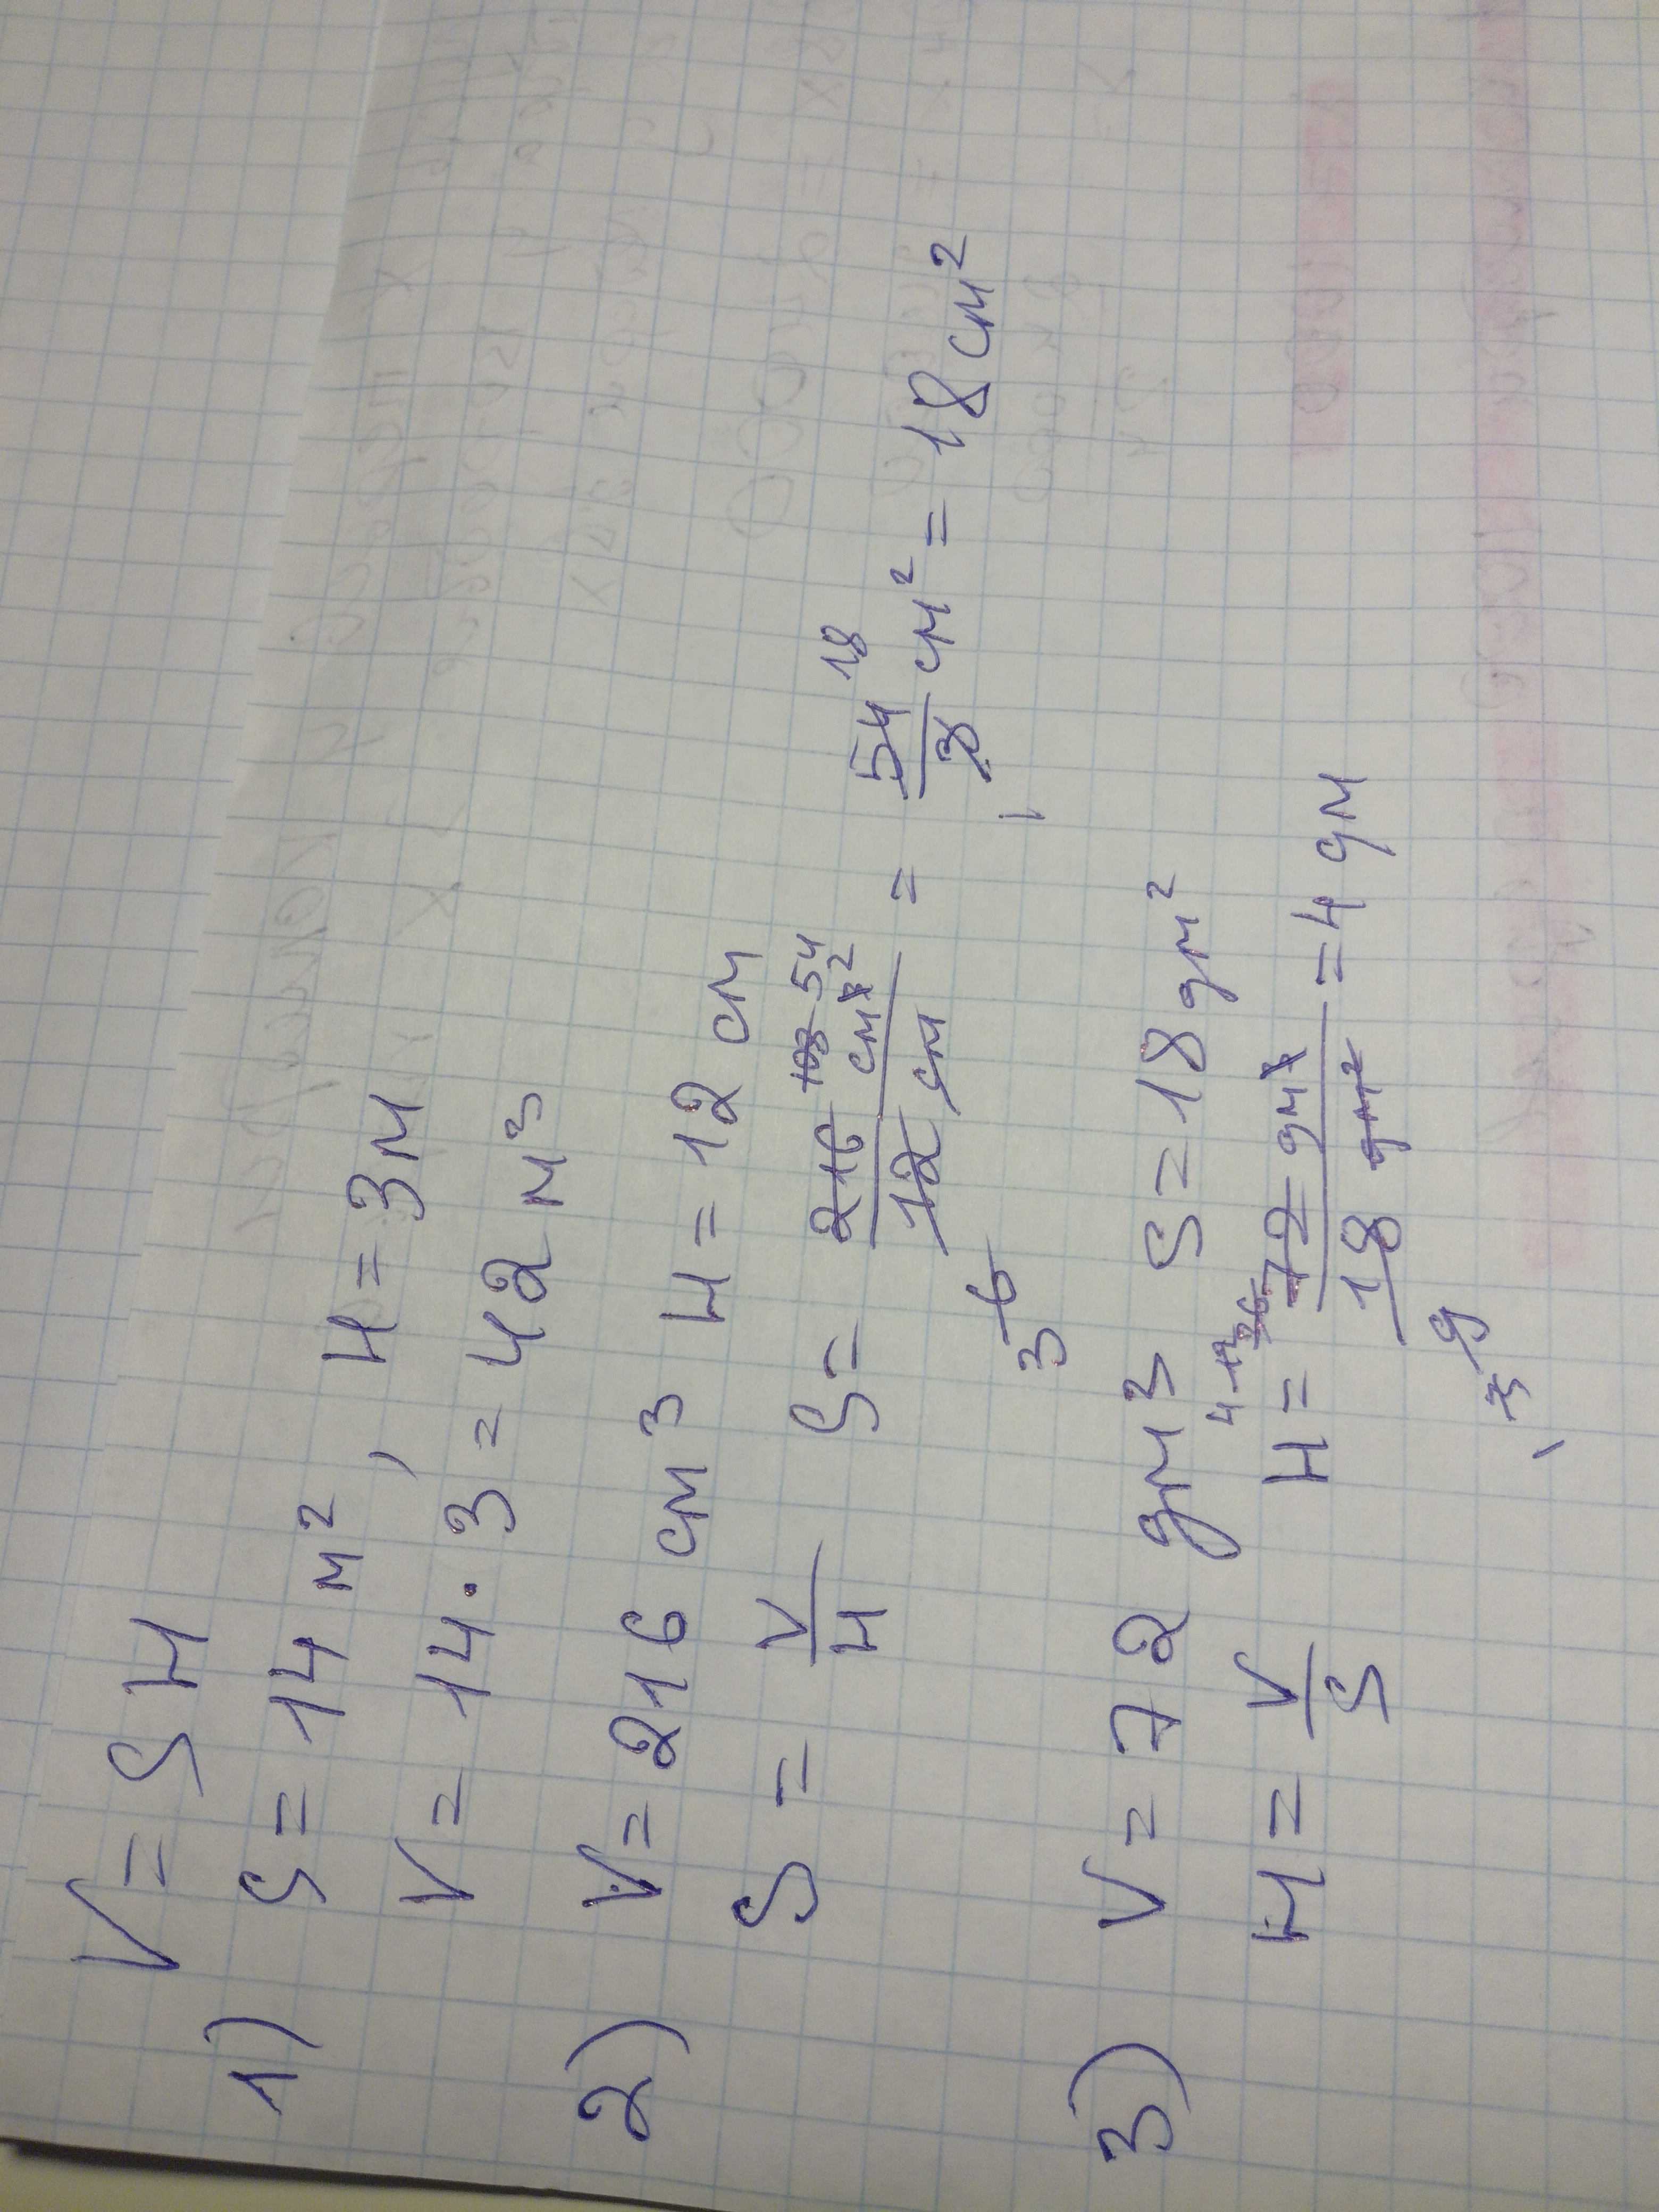 V = SH
1) S = 14 м², H = 3м
V = 14 · 3 = 42 м³
2) V = 216 см³ H = 12 см
S = V/H S = 216 108 54 см² / 12 см 6 3 = 54 18 / 3 1 см² = 18 см²
3) V = 72 дм³ S = 18 дм²
H = V/S H = 4 12 36 72 дм / 18 дм² 9 3 1 = 4 дм